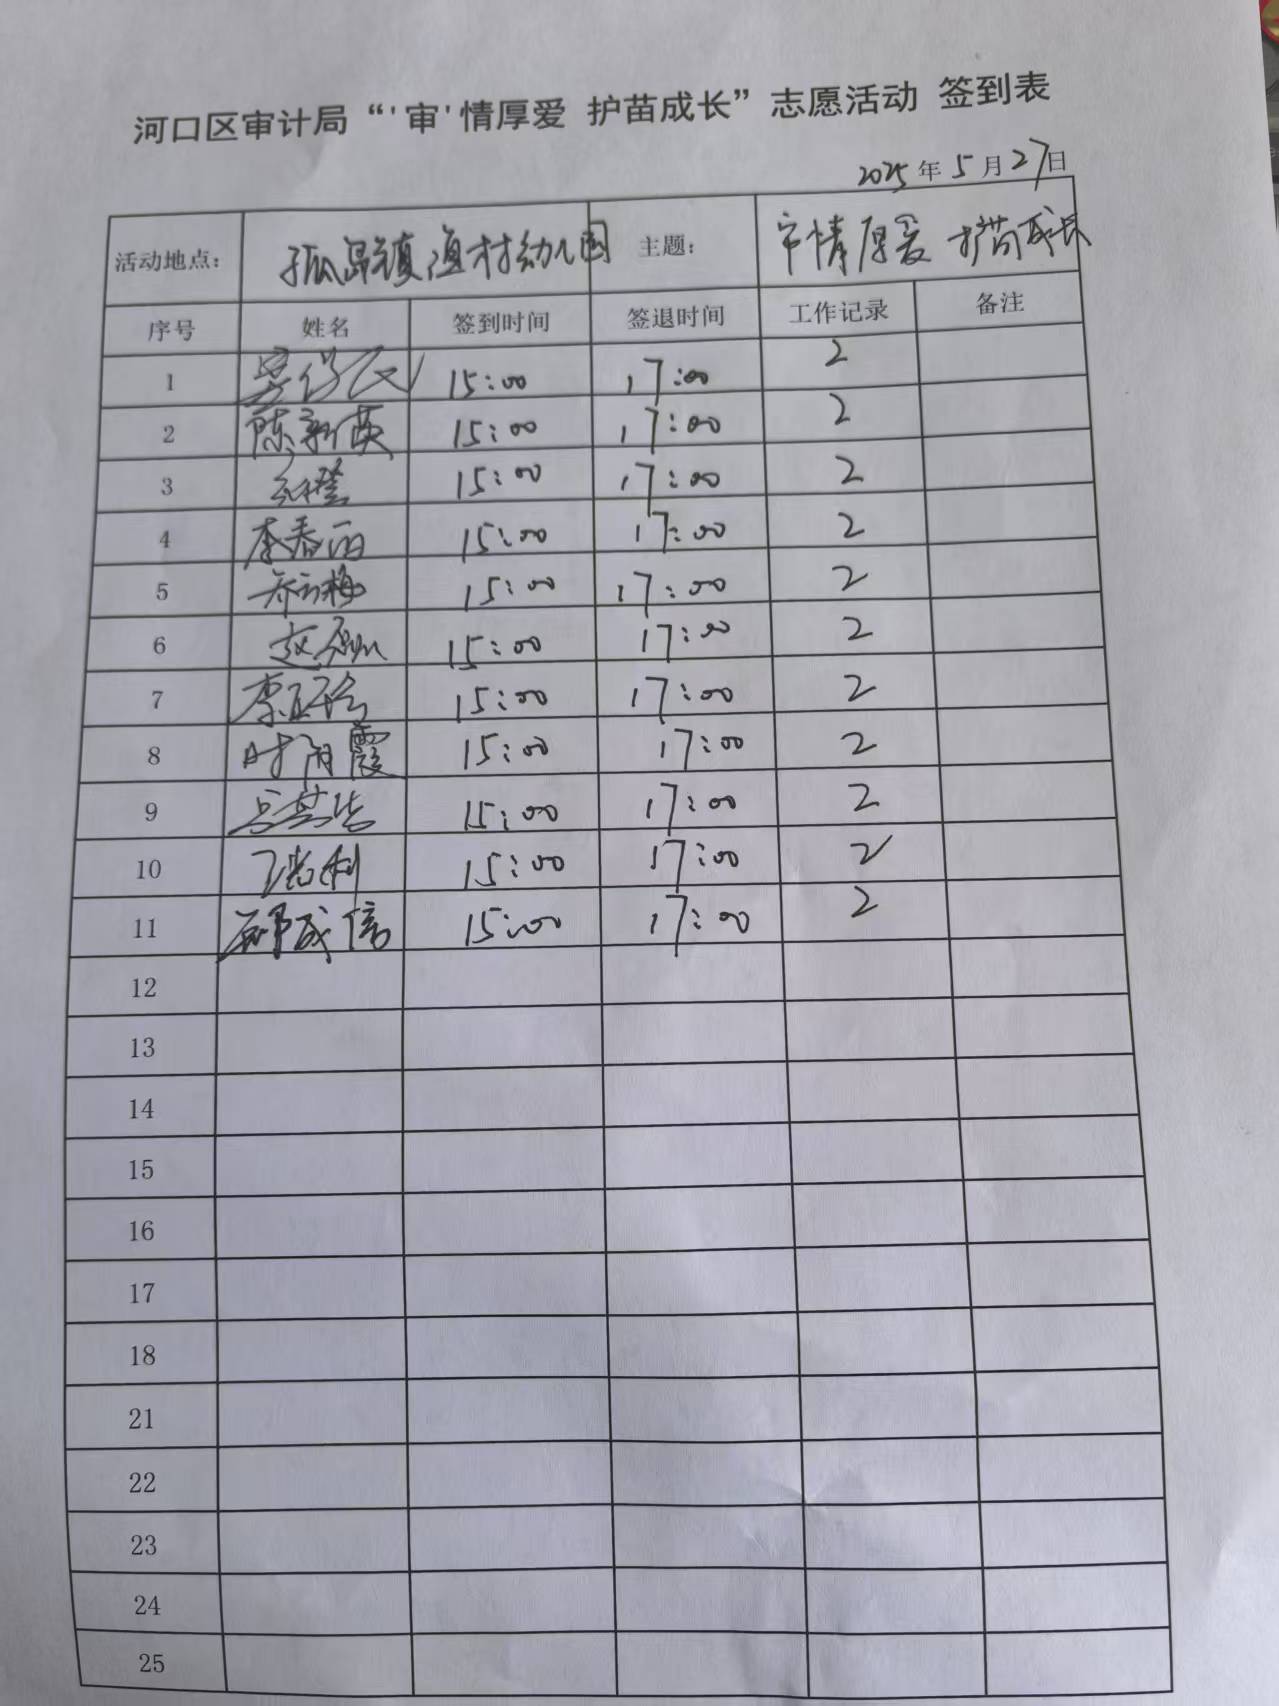 河口区审计局“'审'情厚爱 护苗成长”志愿活动 签到表
2025年5月27日
活动地点： 孤岛镇渔村幼儿园 主题： 审情厚爱 护苗成长
序号 姓名 签到时间 签退时间 工作记录 备注
1 15:00 17:00 2
2 陈新英 15:00 17:00 2
3 15:00 17:00 2
4 李春丽 15:00 17:00 2
5 乔云梅 15:00 17:00 2
6 赵 15:00 17:00 2
7 李 15:00 17:00 2
8 时阳霞 15:00 17:00 2
9 15:00 17:00 2
10 15:00 17:00 2
11 成信 15:00 17:00 2
12
13
14
15
16
17
18
21
22
23
24
25